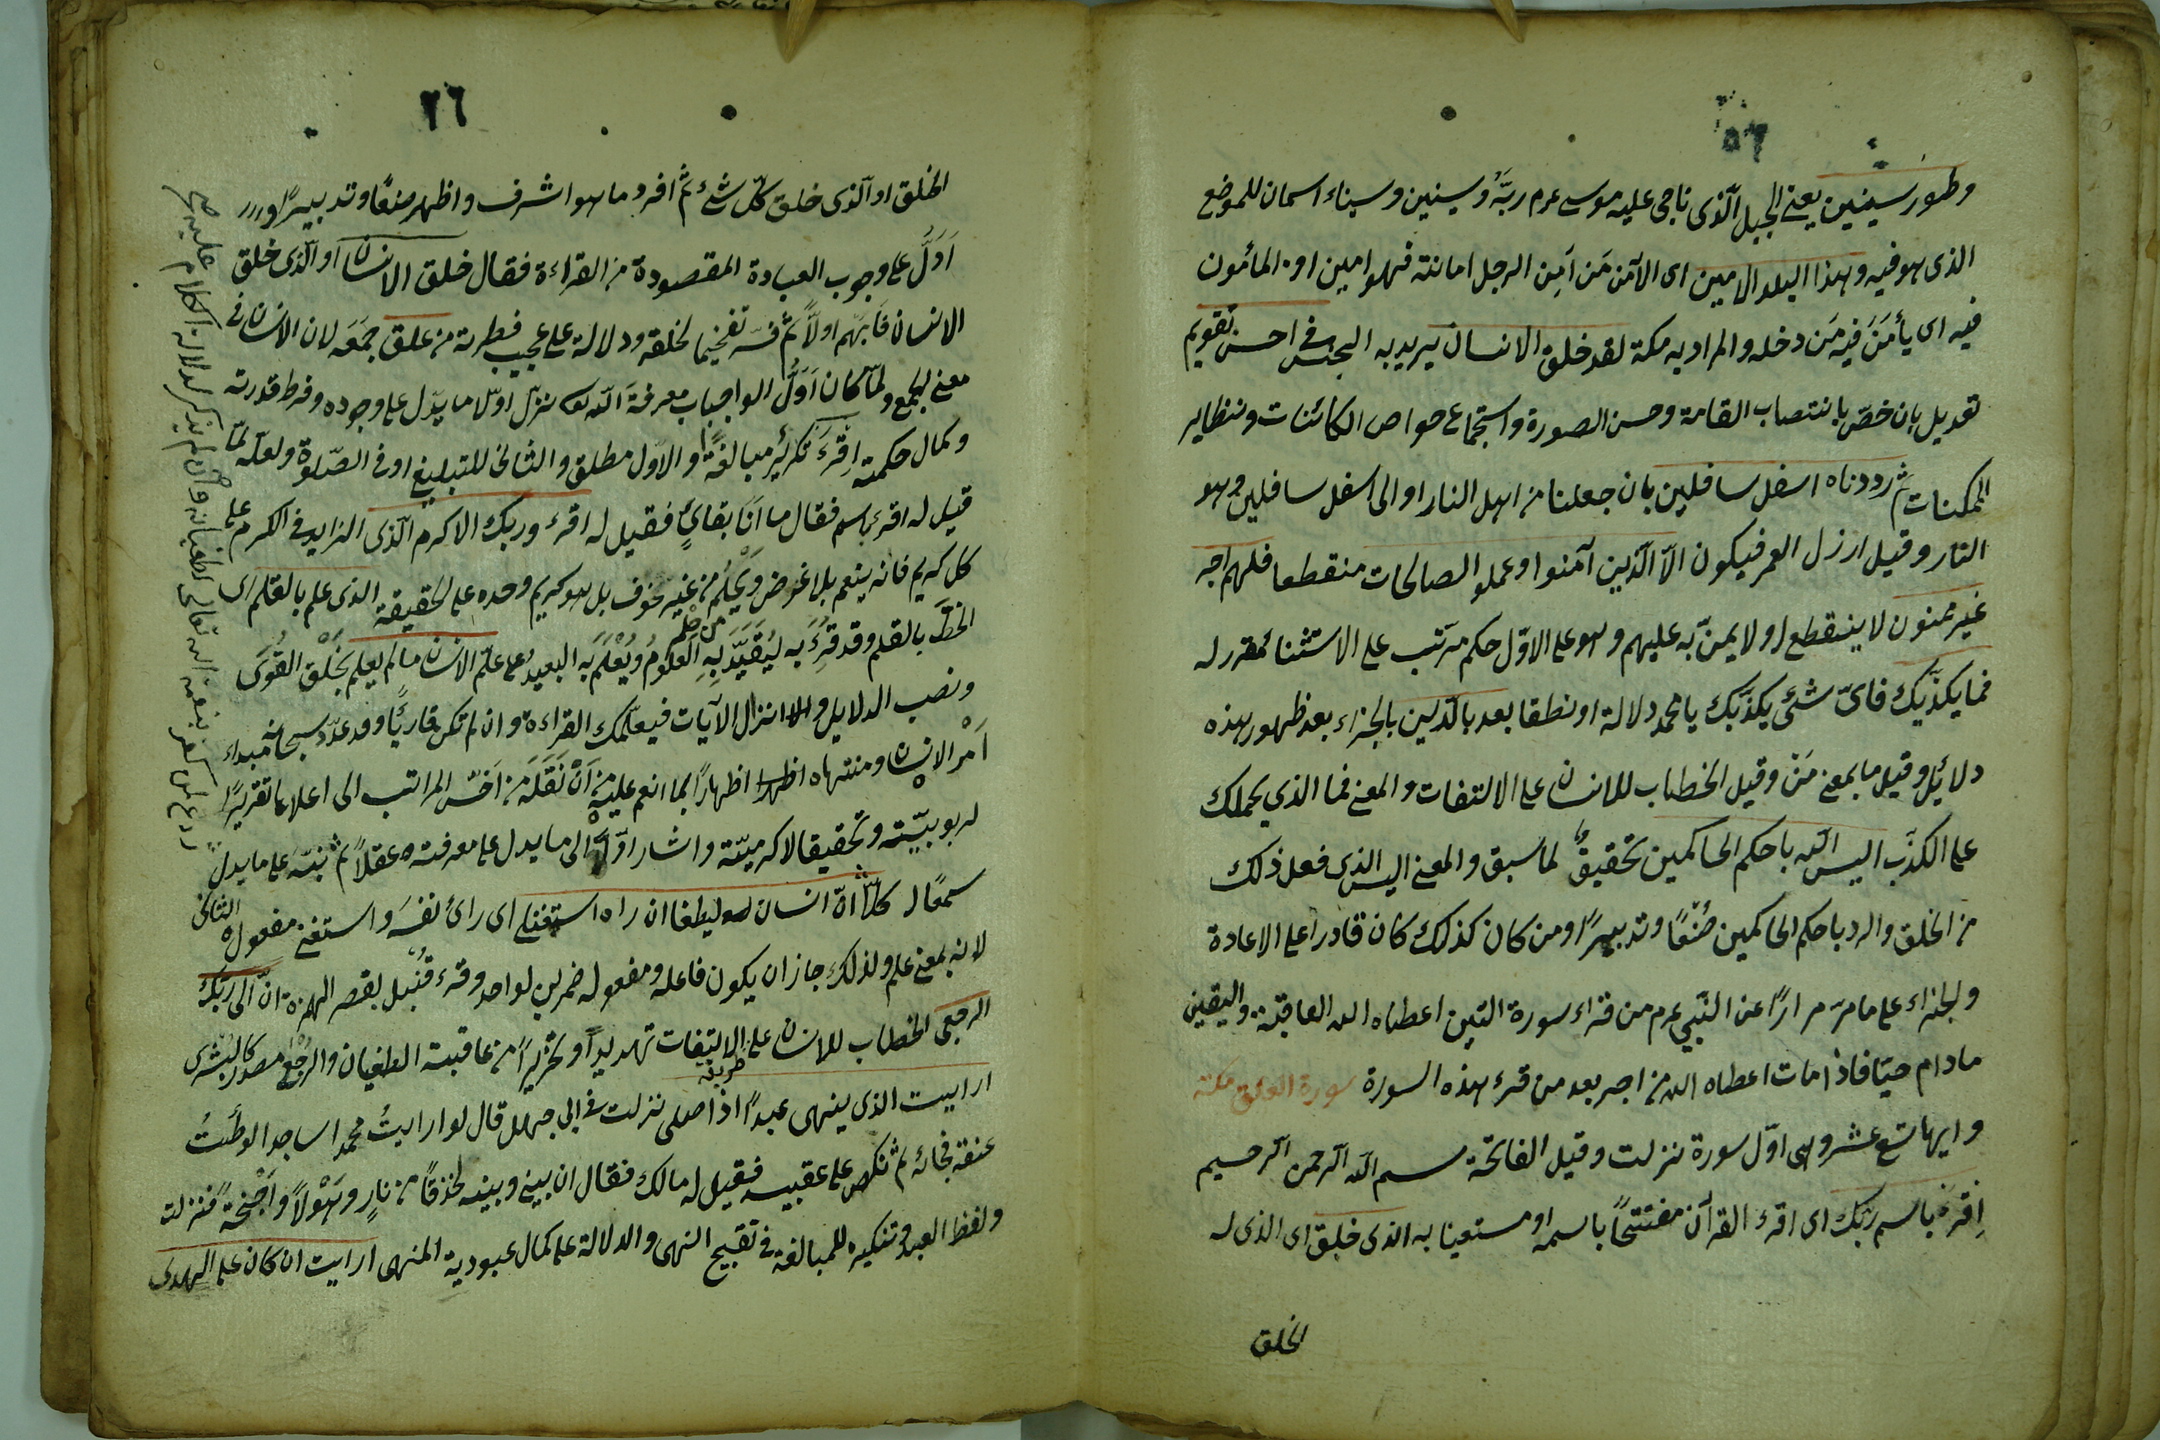 وطور سينين يعنى الجبل الذى ناجى عليه موسى عم ربَّهُ وسينين وسيناء اسمان للموضع
الذى هو فيه وهذا البلد الامين اى الآمن مَن اَمِن الرجل امانته فهو امين او المأمون
فيه اى يأمَنَ فيه مَن دخله والمراد به مكة لقد خلق الانسان يريد به الجنس فى احسن تقويم
تعديل بان خصّ بانتصاب القامة وحسن الصورة واستجماع خواص الكائنات ونظاير
الممكنات ثم رددناه اسفل سافلين بان جعلنا من اهل النار او الى اسفل سافلين وهو
النار وقيل ارزل العمر فيكون الّا الّذين آمنوا وعملو الصالحات منقطعا فلهم اجر
غير ممنون لا ينقطع او لا يمنّ به عليهم وهو على الاوّل حكم مرتب على الاستثناء مقرر له
فما يكذّبك فاىّ شئى يكذّبك يا محمد دلالة او نطقا بعد بالدّين بالجزاء بعد ظهور هذه
دلائل وقيل ما بمعنى مَنْ وقيل الخطاب للانسان على الالتفات والمعنى فما الذي يحملك
على الكذب اليس الله باحكم الحاكمين تحقيق لما سبق والمعنى اليس الذى فعل ذلك
من الخلق والرد باحكم الحاكمين صُنْعًا وتدبيرًا ومن كان كذلك كان قادرا على الاعادة
ولجزاء على ما مرّ مرارًا عن النّبي عم من قراء سورة التين اعطاه الله العافية واليقين
مادام حيّا فاذا مات اعطاه الله من اجر بعد من قرء هذه السورة سورة العلق مكية
وايها تسع عشر وهى اوّل سورة نزلت وقيل الفاتحة بسم الله الرحمن الرحيم
اِقرَء باسم ربّك اى اقرء القرآن مفتتحًا باسمه او مستعينا به الذى خلق اى الذى له
الخلق
٢٦
الخلق او الّذى خلق كلّ شئ ثمّ افرد ما هو اشرف واظهر صنعًا وتدبيرًا و
اَوَلُّ على وجوب العبادة المقصودة من القراءة فقال خلق الانسان او الّذى خلق
الانسان فَابهم اولاً ثم فسّر تفخيما لخلقه ودلالة على عجيب فطرته من علق جمَعَه لان الانسان فى
معنى الجمع ولمّا كان اَوَلُّ الواجباب معرفة الله نزل اولا ما يدّل على وجوده وفرط قدرته
وكمال حكمته اِقْرَء تكرير مبالغةً والاوّل مطلق والثانى للتبليغ او فى الصّلوة ولعلّه لمّا
قيل له اقرء باسم فقال ما اَنَا بقارئٍ فقيل له اقرء وربك الاكرم الّذى الزايد فى الكرم على
كل كريم فانه ينعم بلا غرض ويَحْلُم من غير خوف بل هو كريم وحده على الحقيقة الذى علم بالقلم اى
الخطَّ بالقلم وقد قرِءَ به ليُقَيَّدَ بِهِ العلومُ ويُعْلَمَ به البعيد علّم الانسان ما لم يعلم بخَلْق القُوَى
ونصب الدلايل وانزال الآيات فيعلّمك القراءة وان لم تكن قاريًا وقد عدّد سبحانه مبداء
اَمْرَ الانسان ومنتهاه اظهارًا بما انعم عليه من اَنْ نَقَلَهَ من اَخسّ المراتب الى اعلاها تقريرًا
لربوبيّته وتحقيقا لاكرميّته واشار اوّلاً الى ما يدل على معرفته عقلاً ثم نبّه على ما يدل
سمعًا له كلّا انّ انسان ليطغا ان راه استغنى اى رائ نفسَه واستغنى مفعوله الثانى
لانه بمعنى علم ولذلك جاز ان يكون فاعله ومفعوله ضمرين لواحد وقرء قُنْبل بقصر الهمزة انّ الى ربّك
الرجعى الخطاب للانسان على الالتفات تهديداً وتحذيراً من عاقبة الطغيان والرجعى مصدر كالبُشْرى
ارايت الذى ينهى عبدًا اذا صلى نزلت فى ابى جهل قال لو ارايتُ محمدا ساجدا لوطئتُ
عنقه فجائه ثم نكص على عقبيه فقيل له مالك فقال ان بينى وبينه لخندقًا من نارٍ وهَوْلاً واَجْنحةً فنزلت
ولفظ العبد وتنكيره للمبالغة فى تقبيح النهى والدلالة على كمال عبودية المنهى ارايت ان كان على الهدى
ردع لمن كفر بنعمة الله تعالى لطغيانه وان لم يذكر لدلالة الكلام عليه صح